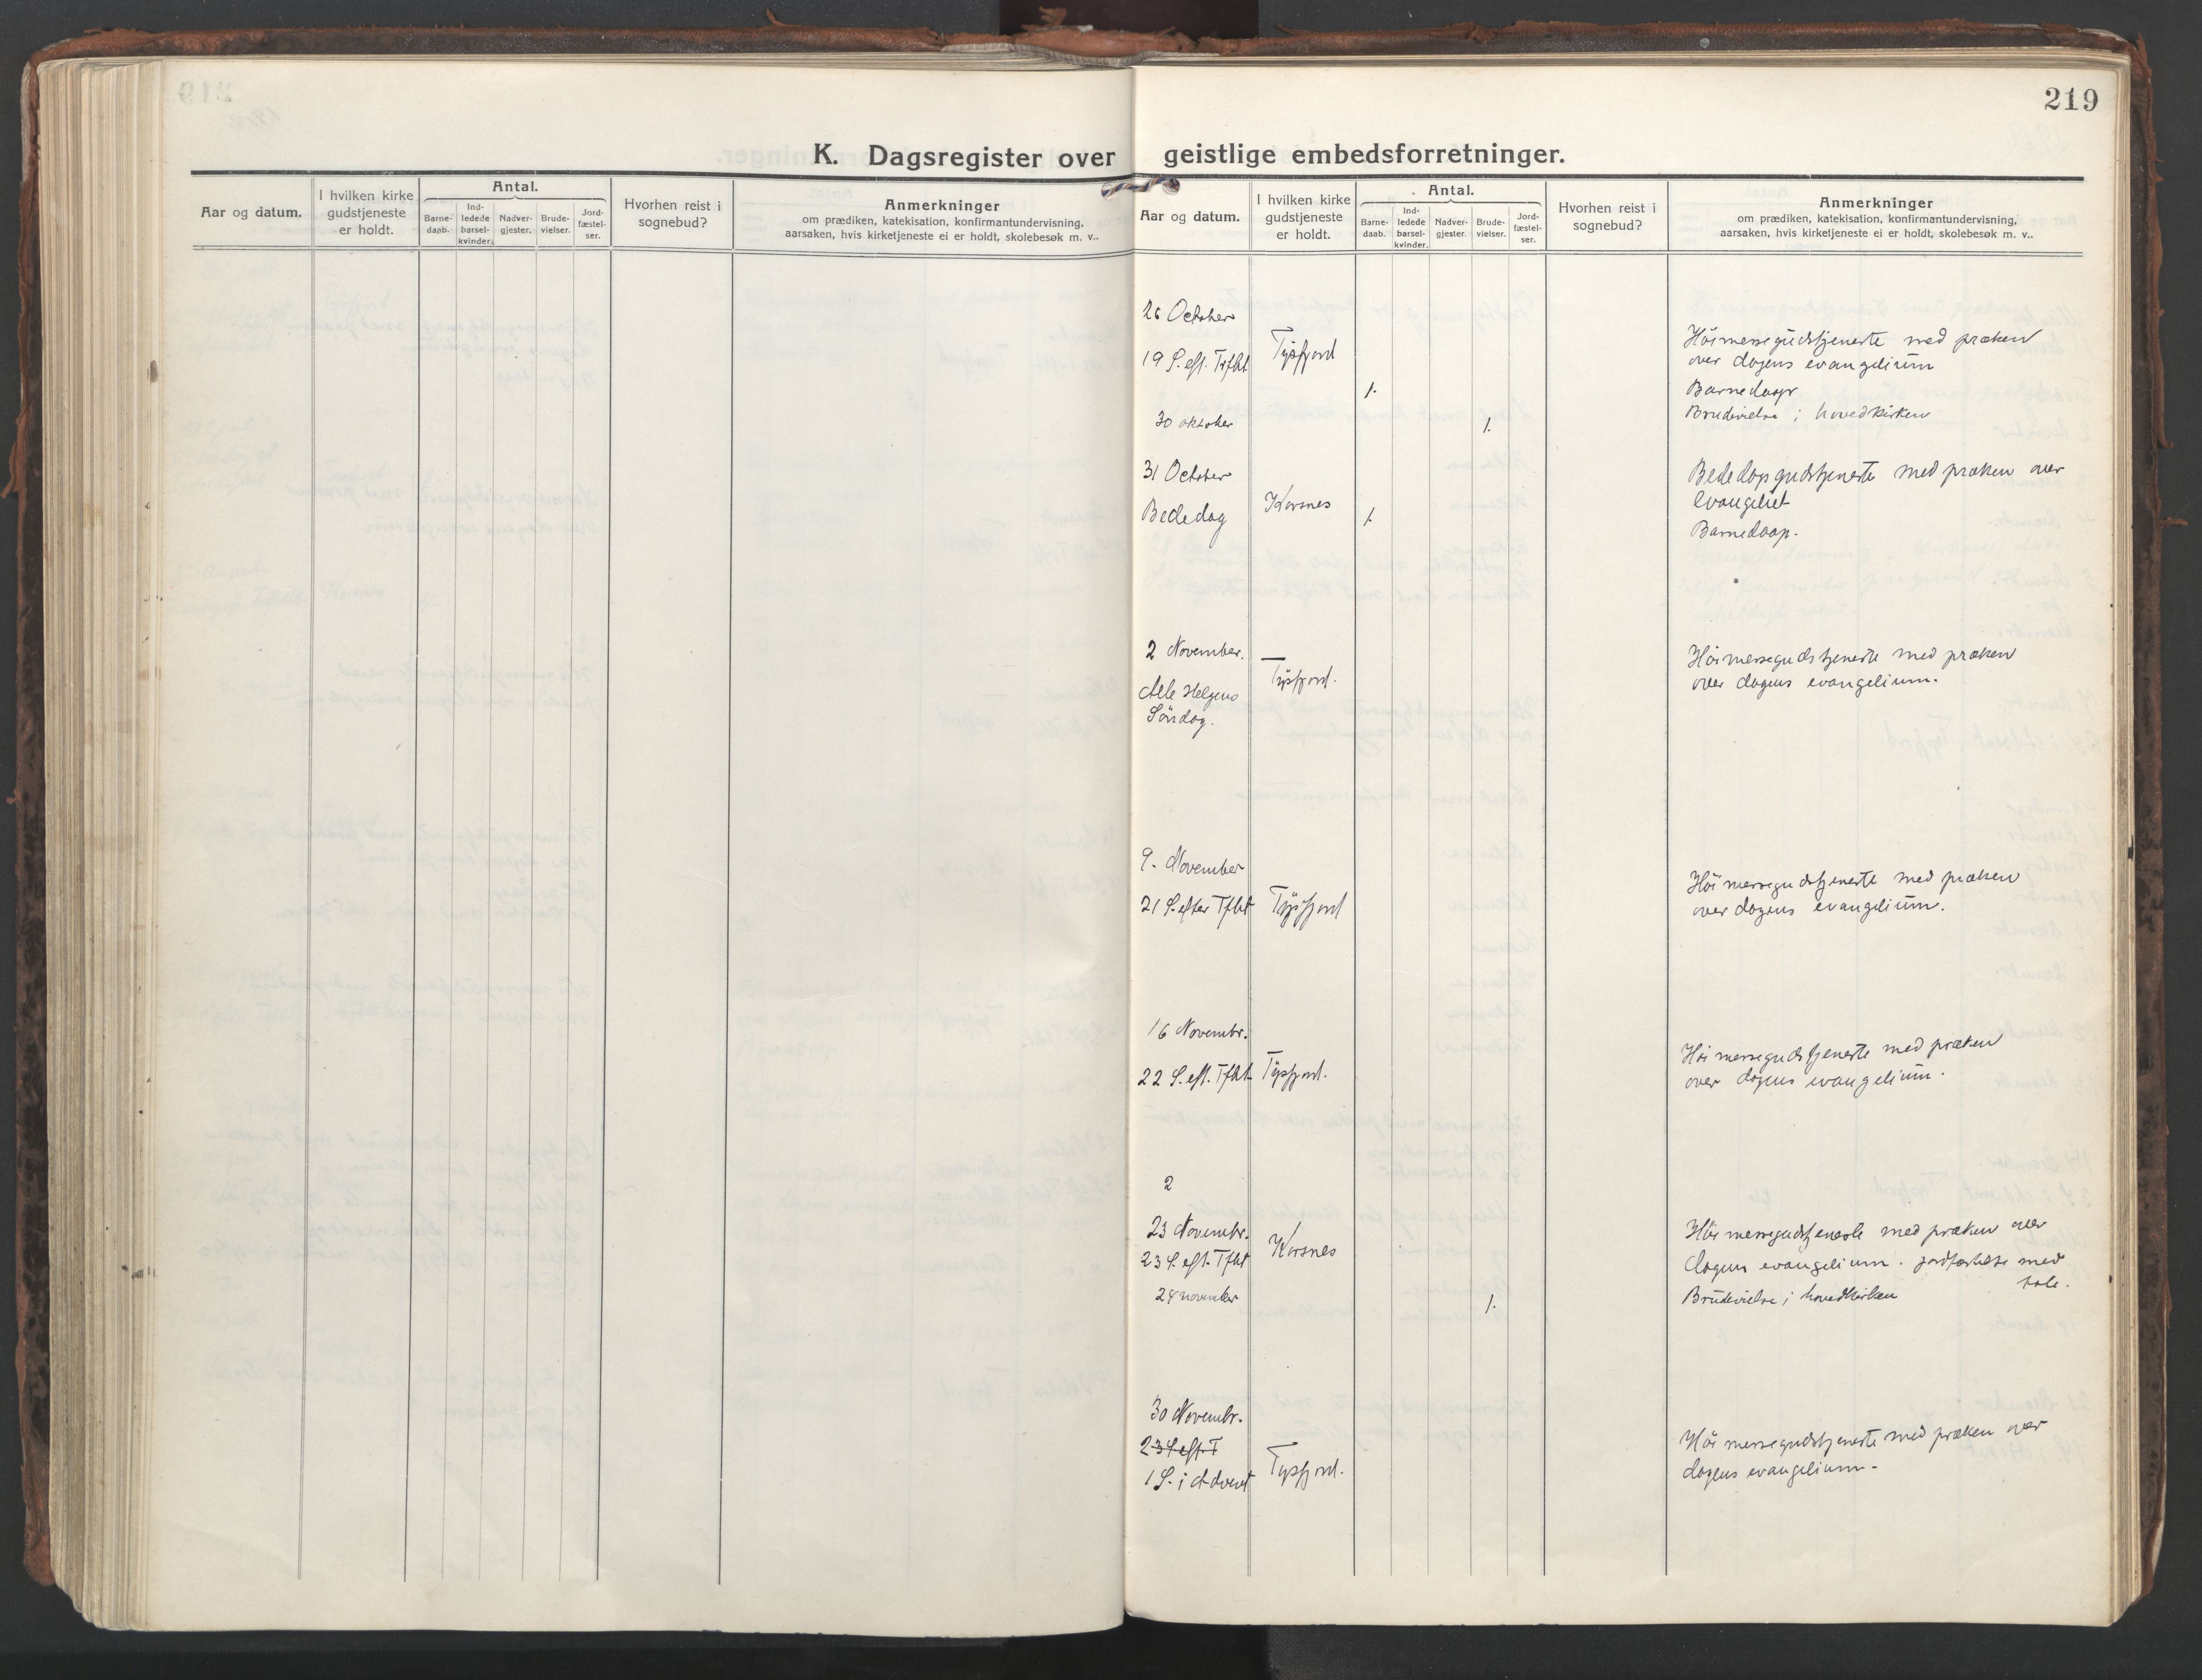 219
K. Dagsregister over geistlige embedsforretninger.
Aar og datum.
I hvilken kirke
gudstjeneste
er holdt.
Antal.
Barne-
daab.
Ind-
ledede
barsel-
kvinder.
Nadver-
gjester.
Brude-
vielser.
Jord-
fæstel-
ser.
Hvorhen reist i
sognebud?
Anmerkninger
om prædiken, katekisation, konfirmantundervisning,
aarsaken, hvis kirketjeneste ei er holdt, skolebesøk m. v..
Aar og datum.
I hvilken kirke
gudstjeneste
er holdt.
Antal.
Barne-
daab.
Ind-
ledede
barsel-
kvinder.
Nadver-
gjester.
Brude-
vielser.
Jord-
fæstel-
ser.
Hvorhen reist i
sognebud?
Anmerkninger
om prædiken, katekisation, konfirmantundervisning,
aarsaken, hvis kirketjeneste ei er holdt, skolebesøk m. v..
26 October
19 S. eft. Trfht Tysfjord Höimessegudstjeneste med præken
over dagens evangelium
1. Barnedaap
30 oktober 1. Brudevielse i hovedkirken
31 October Bededagsgudstjeneste med præken over
Bededag Korsnes 1. evangeliet
Barnedaap.
2 November. Tysfjord. Höimessegudstjeneste med præken
Alle Helgens over dagens evangelium.
Söndag.
9. November Höimessegudstjeneste med præken
21 S. efter Tfht Tysfjord over dagens evangelium.
16 Novembr. Höimessegudstjeneste med præken
22 S. eft. Tfht Tysfjord. over dagens evangelium.
2
23 Novembr. Korsnes Höimessegudstjeneste med præken over
23 S. eft. Tfht dagens evangelium. jordfæstelse med
tale.
24 november 1. Brudevielse i hovedkirken
30 Novembr.
23 S eft. T Höimessegudstjeneste med præken over
1 S. i Advent Tysfjord. dagens evangelium.